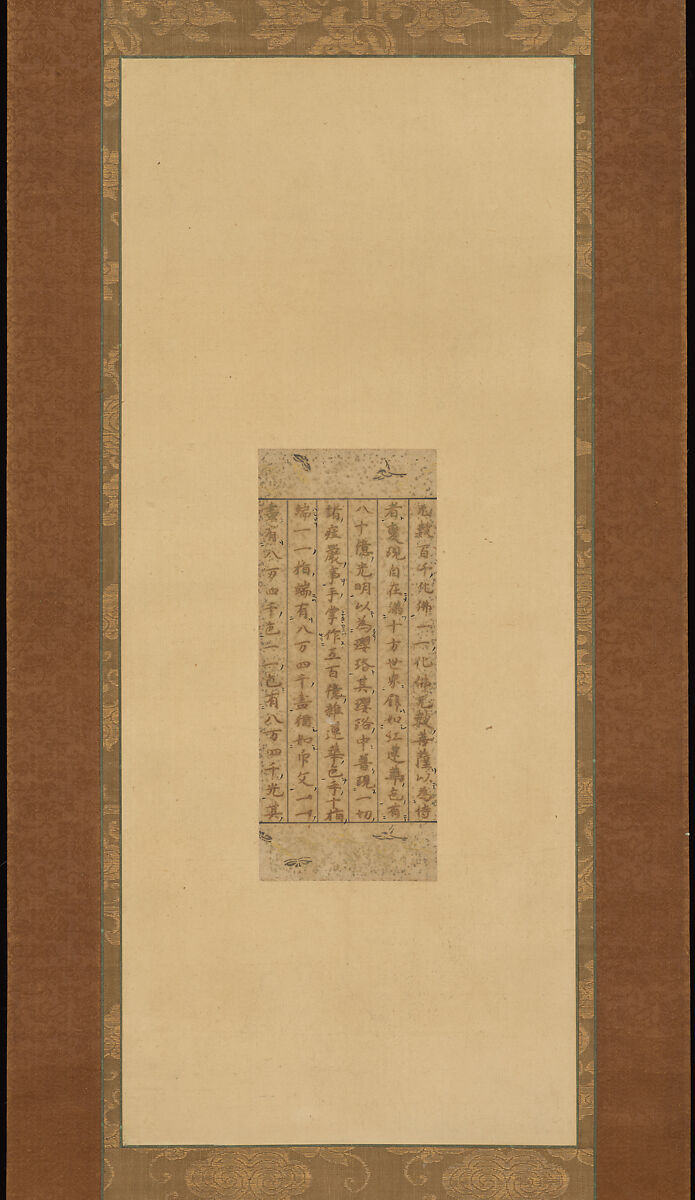 无數百千化佛一一化佛无數菩薩以為侍
者變現自在滿十方世界餘如紅蓮華色有
八十億光明以為瓔珞其瓔珞中普現一切
諸莊嚴事手掌作五百億雜蓮華色手十指
端一一指端有八万四千畫猶如印文一一
畫有八万四千色一一色有八万四千光其